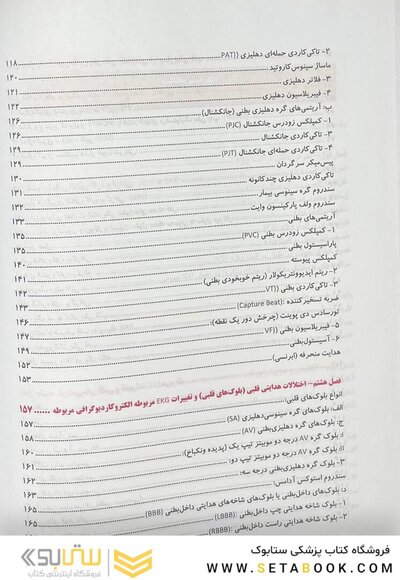 ۲- تاکی‌کاردی حمله‌ای دهلیزی (PAT)) ۱۱۸
ماساژ سینوس کاروتید ۱۲۰
۳- فلاتر دهلیزی ۱۲۱
۴- فیبریلاسیون دهلیزی ۱۲۲
ب: آریتمی‌های گره دهلیزی بطنی (جانکشنال) ۱۲۶
۱- کمپلکس زودرس جانکشنال (PJC) ۱۲۶
۳- تاکی‌کاردی جانکشنال ۱۲۸
۴- تاکی‌کاردی حمله‌ای جانکشنال (PJT) ۱۲۹
پیس‌میکر سرگردان ۱۲۹
تاکی‌کاردی دهلیزی چندکانونه ۱۳۰
سندروم گره سینوسی بیمار ۱۳۱
سندروم ولف پارکینسون وایت ۱۳۲
آریتمی‌های بطنی ۱۳۳
۱- کمپلکس زودرس بطنی (PVC) ۱۳۵
پاراسیستول بطنی ۱۳۵
کمپلکس پیوسته ۱۴۰
۲- ریتم ایدیوونتریکولار (ریتم خوبخودی بطنی) ۱۴۱
۳- تاکی‌کاردی بطنی (VT)) ۱۴۲
ضربه تسخیرکننده (Capture Beat): ۱۴۳
تورسادس دی پوینت (چرخش دور یک نقطه): ۱۴۷
۵- فیبریلاسیون بطنی (VF)) ۱۴۹
۶- آسیستول‌بطنی ۱۵۲
هدایت منحرفه (ابرنسی) ۱۵۳
فصل هشتم- اختلالات هدایتی قلبی (بلوک‌های قلبی) و تغییرات EKG مربوطه الکتروکاردیوگرافی مربوطه ۱۵۷
انواع بلوک‌های قلبی:
الف: بلوک‌های گره سینوسی‌دهلیزی (SA) ۱۵۷
ج: بلوک‌های گره دهلیزی‌بطنی (AV) ۱۵۸
I: بلوک گره AV درجه دو موبیتز تیپ یک (پدیده ونکباخ): ۱۶۰
II: بلوک گره AV درجه دو موبیتز تیپ دو: ۱۶۱
۳- بلوک گره دهلیزی‌بطنی درجه سه: ۱۶۲
سندروم استوکس آدامس: ۱۶۳
د: بلوک‌های داخل‌بطنی یا بلوک‌های شاخه‌های هدایتی داخل‌بطنی (BBB) ۱۶۵
۱- بلوک شاخه هدایتی چپ داخل‌بطنی (LBBB): ۱۶۵
۲- بلوک شاخه هدایتی راست داخل‌بطنی (RBBB):
فروشگاه کتاب پزشکی ستابوک
WWW.SETABOOK.COM
ستابوک
فروشگاه اینترنتی کتاب